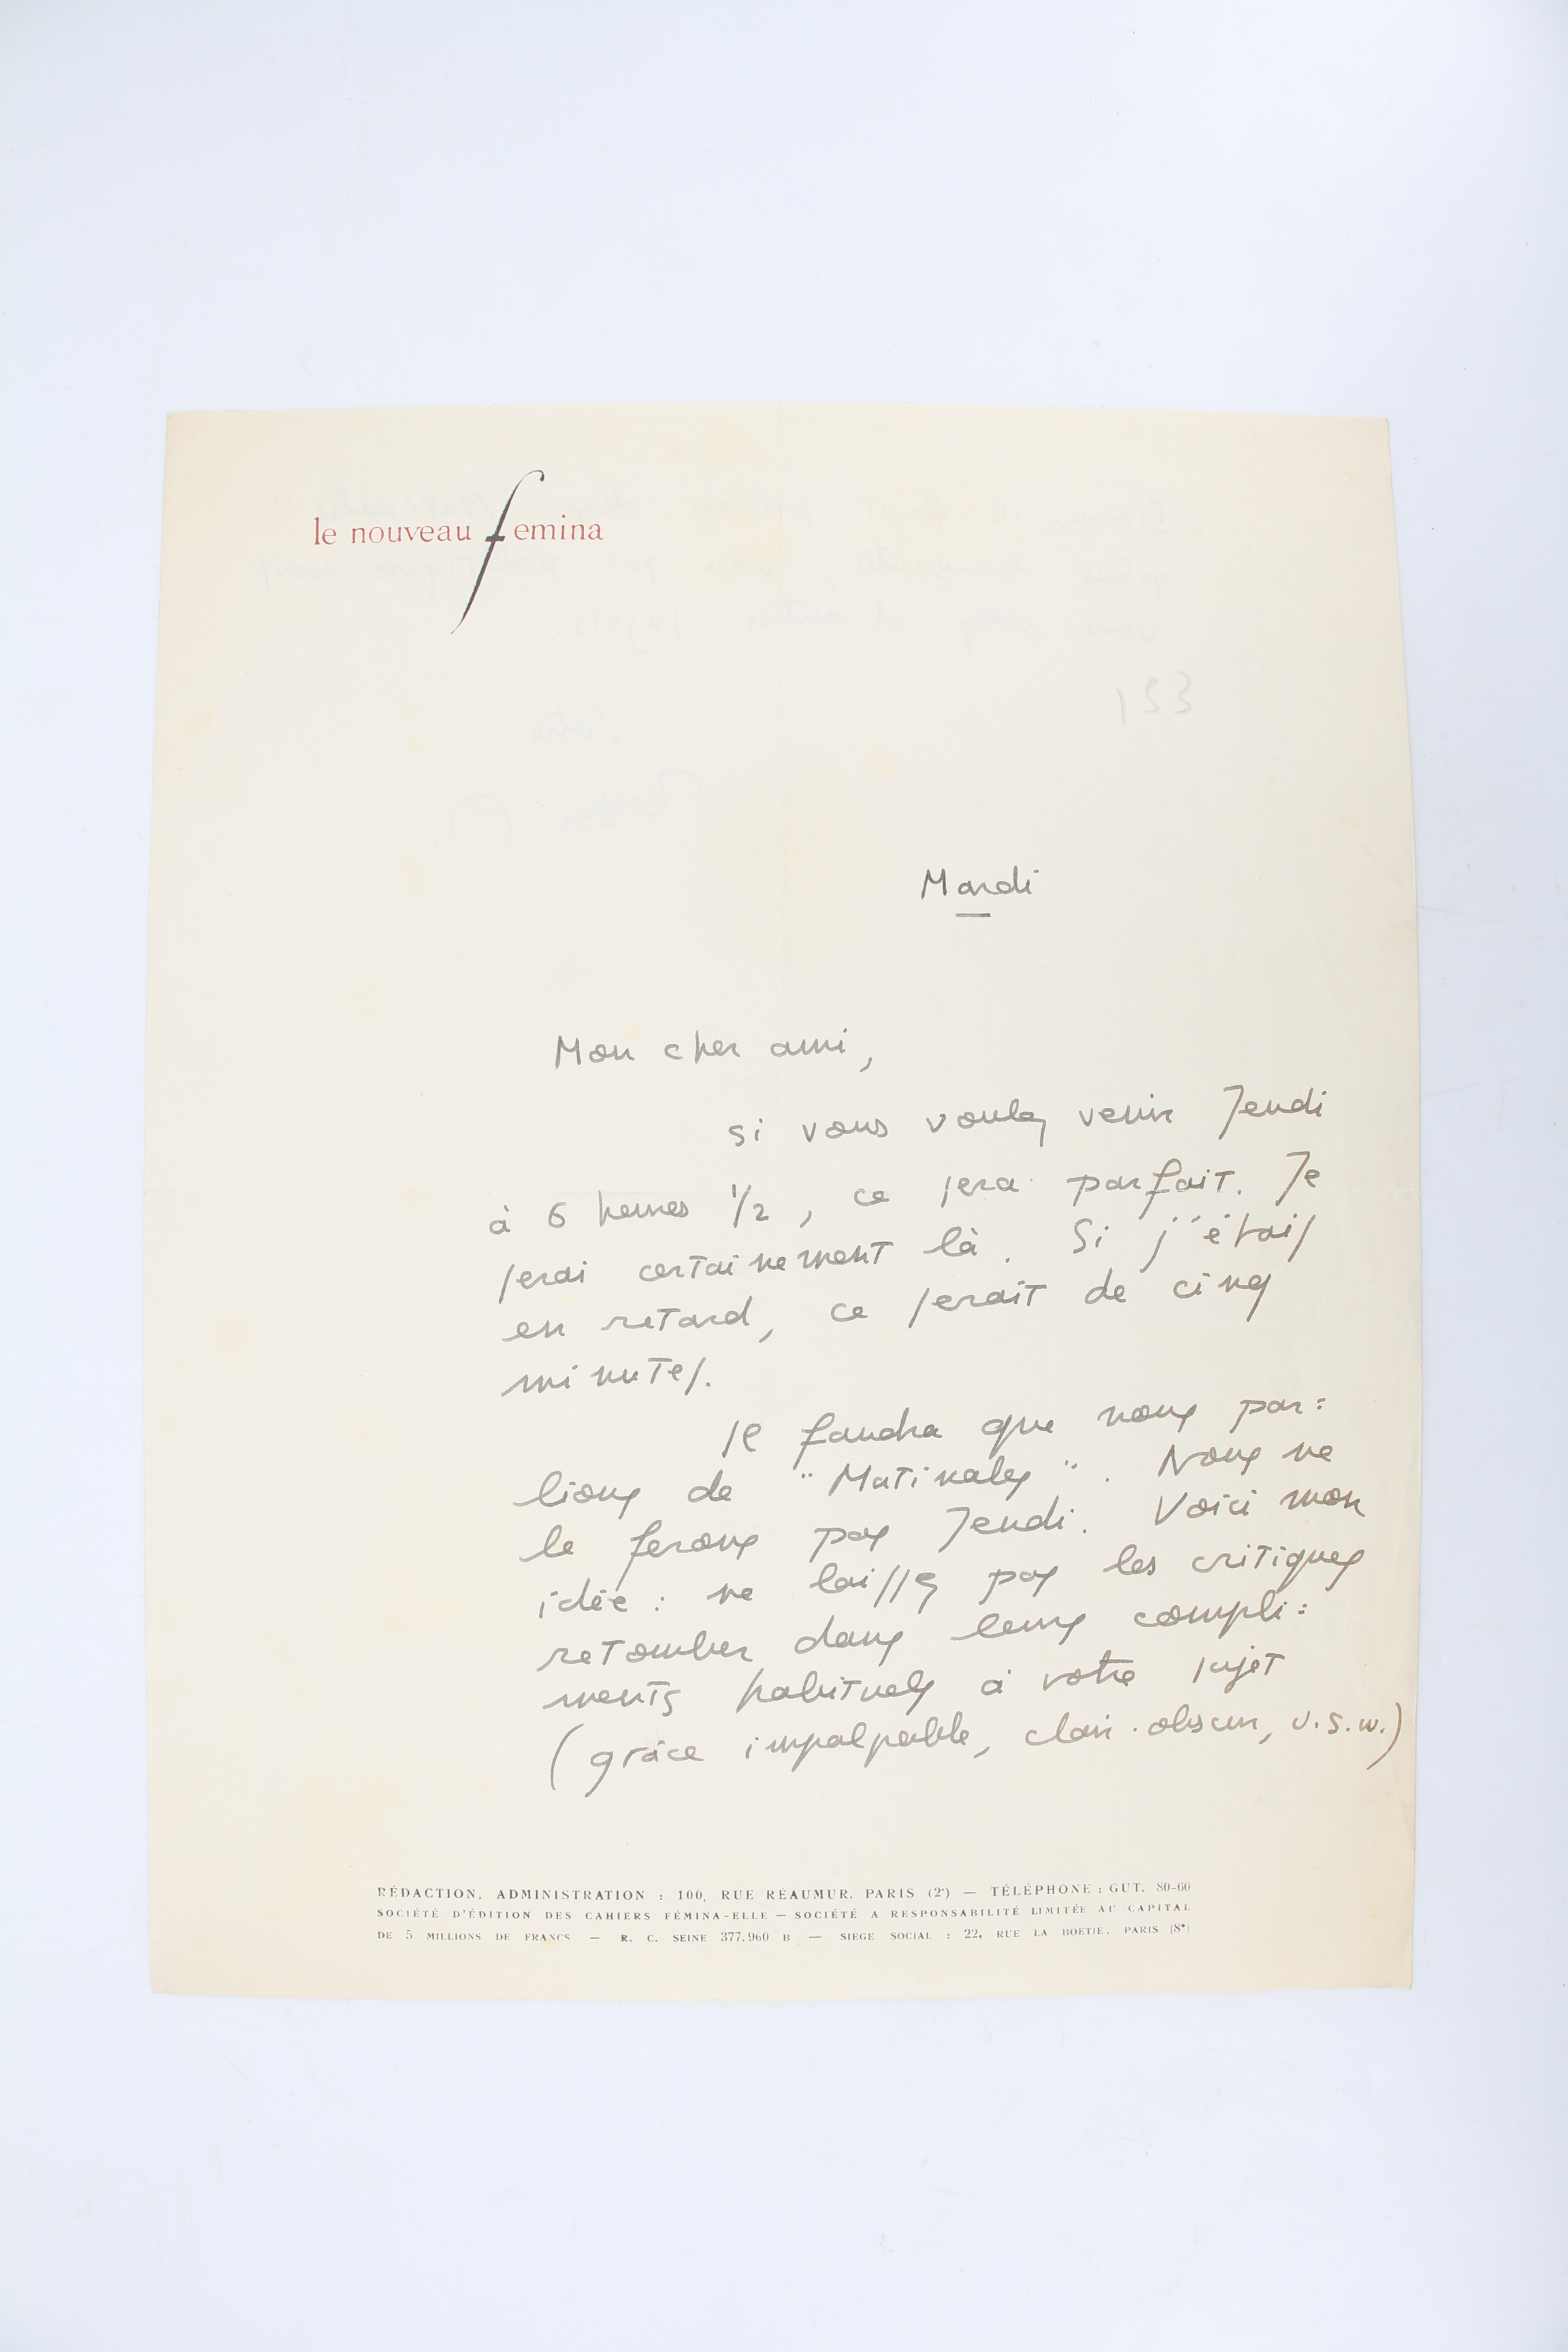 le nouveau femina
Mardi
Mon cher ami,
si vous voulez venir Jeudi
à 6 heures 1/2, ce sera parfait. Je
serai certainement là. Si j'étais
en retard, ce serait de cinq
minutes.
Il faudra que nous par=
lions de "Matinales". Nous ne
le ferons pas Jeudi. Voici mon
idée : ne laissez pas les critiques
retomber dans leurs compli=
ments habituels à votre sujet
(grâce impalpable, clair-obscur, u.s.w.)
RÉDACTION, ADMINISTRATION : 100, RUE RÉAUMUR, PARIS (2e) — TÉLÉPHONE : GUT. 80-60
SOCIÉTÉ D'ÉDITION DES CAHIERS FÉMINA-ELLE — SOCIÉTÉ A RESPONSABILITÉ LIMITÉE AU CAPITAL
DE 5 MILLIONS DE FRANCS — R. C. SEINE 377.960 B — SIÈGE SOCIAL : 22, RUE LA BOETIE, PARIS (8e)